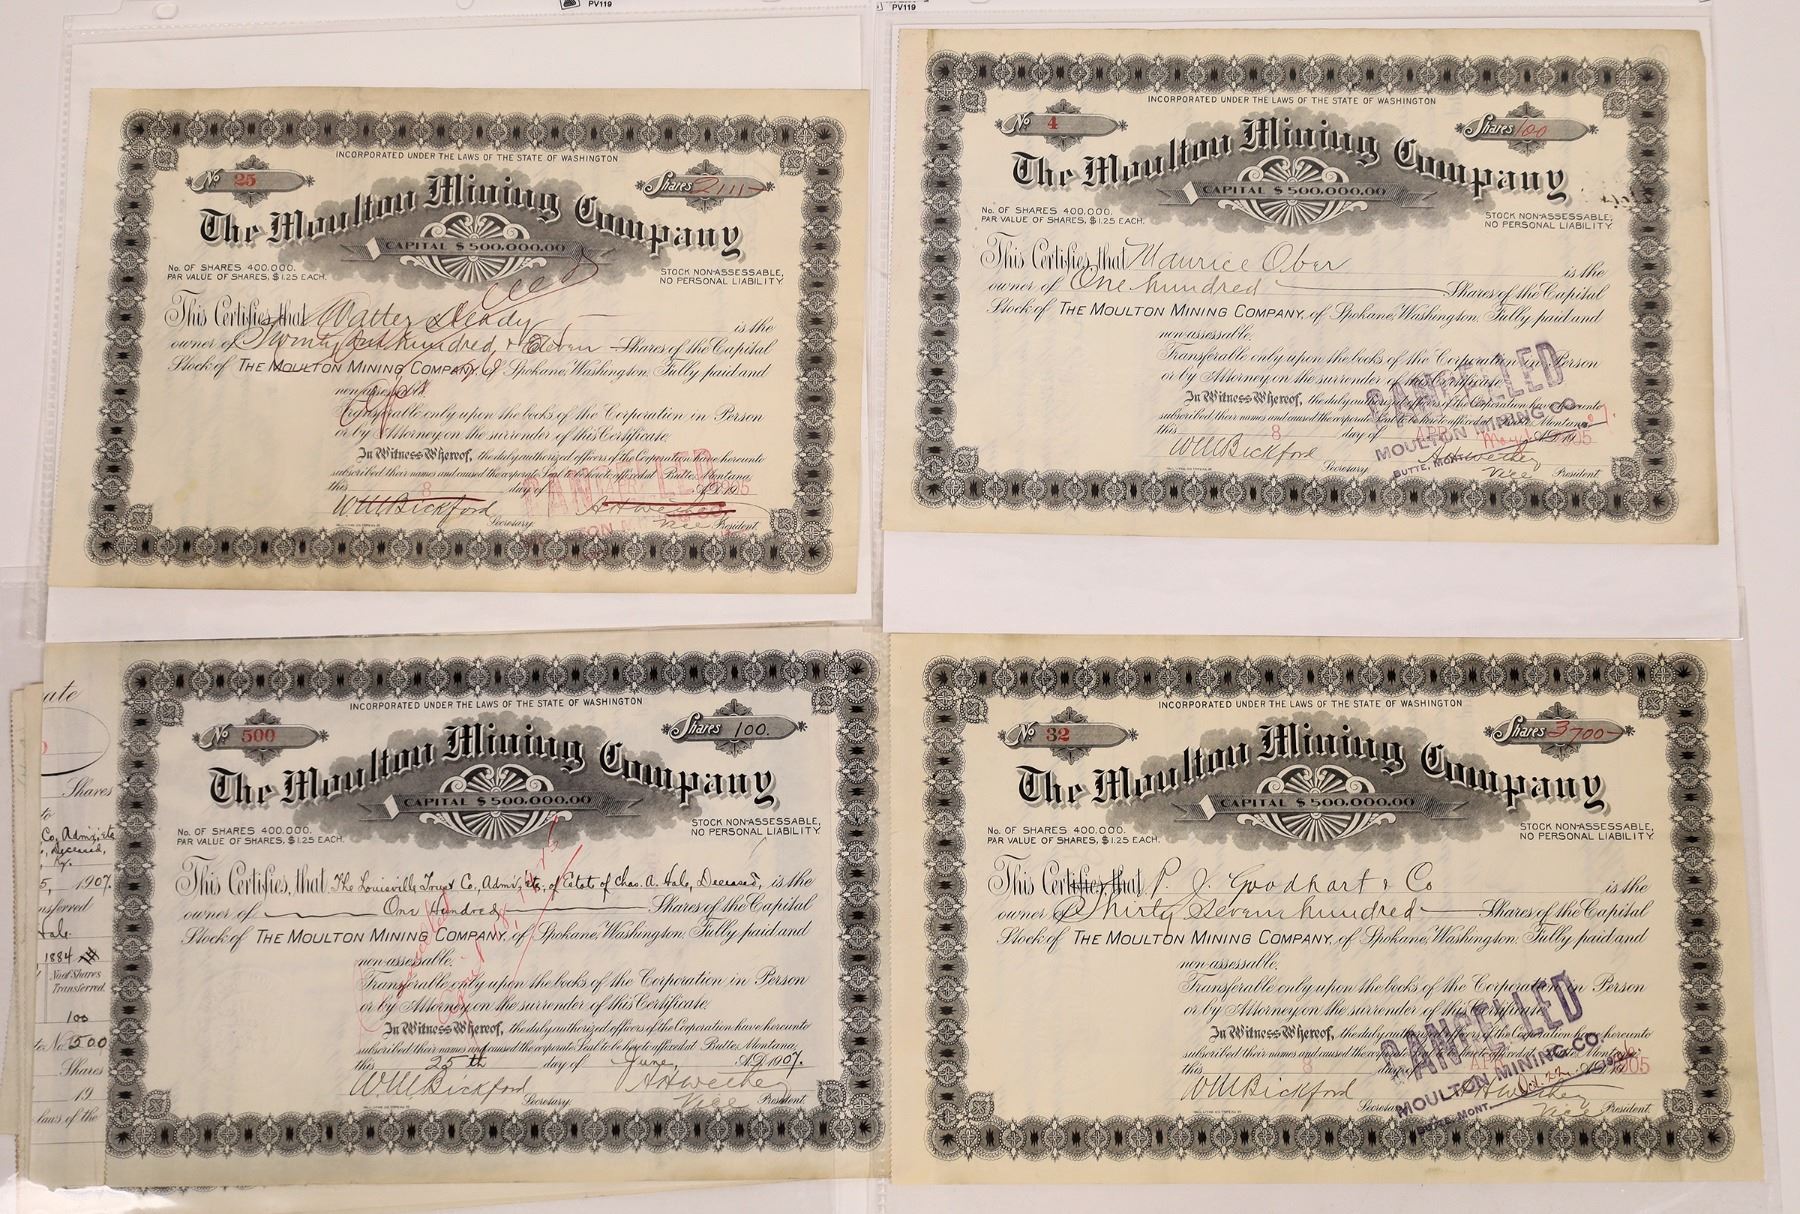 PV119
PV119
INCORPORATED UNDER THE LAWS OF THE STATE OF WASHINGTON
No 25
Shares 2111
The Moulton Mining Company
CAPITAL $500,000.00
No. OF SHARES 400,000.
PAR VALUE OF SHARES, $1.25 EACH.
STOCK NON-ASSESSABLE,
NO PERSONAL LIABILITY
This Certifies that Walter is the
owner of hundred & Eleven Shares of the Capital
Stock of THE MOULTON MINING COMPANY, of Spokane, Washington. Fully paid and
non-assessable.
Transferable only upon the books of the Corporation in Person
or by Attorney on the surrender of this Certificate.
In Witness Whereof, the duly authorized officers of the Corporation have hereunto
subscribed their names and caused the corporate Seal to be hereto affixed at Butte, Montana,
this 8 day of A.D. 1905
CANCELLED
W M Bickford Secretary. Vice President.
INCORPORATED UNDER THE LAWS OF THE STATE OF WASHINGTON
No 4
Shares 100
The Moulton Mining Company
CAPITAL $500,000.00
No. OF SHARES 400,000.
PAR VALUE OF SHARES, $1.25 EACH.
STOCK NON-ASSESSABLE,
NO PERSONAL LIABILITY
This Certifies that Maurice Ober is the
owner of One hundred Shares of the Capital
Stock of THE MOULTON MINING COMPANY, of Spokane, Washington. Fully paid and
non-assessable.
Transferable only upon the books of the Corporation in Person
or by Attorney on the surrender of this Certificate.
In Witness Whereof, the duly authorized officers of the Corporation have hereunto
subscribed their names and caused the corporate Seal to be hereto affixed at Butte, Montana,
this 8 day of APR
CANCELLED
MOULTON MINING CO.
BUTTE, MONT.
W M Bickford Secretary. Vice President.
ate
Shares
to
Co, Admr, etc
Deceased,
5, 1907.
nsferred
1884
No of Shares
Transferred.
100
No. 500
Shares
19
laws of the
INCORPORATED UNDER THE LAWS OF THE STATE OF WASHINGTON
No 500
Shares 100.
The Moulton Mining Company
CAPITAL $500,000.00
No. OF SHARES 400,000.
PAR VALUE OF SHARES, $1.25 EACH.
STOCK NON-ASSESSABLE,
NO PERSONAL LIABILITY
This Certifies, that The Louisville Trust Co, Admr, etc, of Estate of Chas. A. Hale, Deceased, is the
owner of One Hundred Shares of the Capital
Stock of THE MOULTON MINING COMPANY, of Spokane, Washington. Fully paid and
non-assessable.
Transferable only upon the books of the Corporation in Person
or by Attorney on the surrender of this Certificate.
In Witness Whereof, the duly authorized officers of the Corporation have hereunto
subscribed their names and caused the corporate Seal to be hereto affixed at Butte, Montana,
this 25th day of June, A.D. 1907.
W M Bickford Secretary. Vice President.
INCORPORATED UNDER THE LAWS OF THE STATE OF WASHINGTON
No 32
Shares 3700
The Moulton Mining Company
CAPITAL $500,000.00
No. OF SHARES 400,000.
PAR VALUE OF SHARES, $1.25 EACH.
STOCK NON-ASSESSABLE,
NO PERSONAL LIABILITY
This Certifies that P. J. Goodhart & Co is the
owner of Thirty Seven hundred Shares of the Capital
Stock of THE MOULTON MINING COMPANY, of Spokane, Washington. Fully paid and
non-assessable.
Transferable only upon the books of the Corporation in Person
or by Attorney on the surrender of this Certificate.
In Witness Whereof, the duly authorized officers of the Corporation have hereunto
subscribed their names and caused the corporate Seal to be hereto affixed at Butte, Montana,
this 8 day of 1905
CANCELLED
MOULTON MINING CO.
BUTTE, MONT.
Oct. 22
W M Bickford Secretary Vice President.